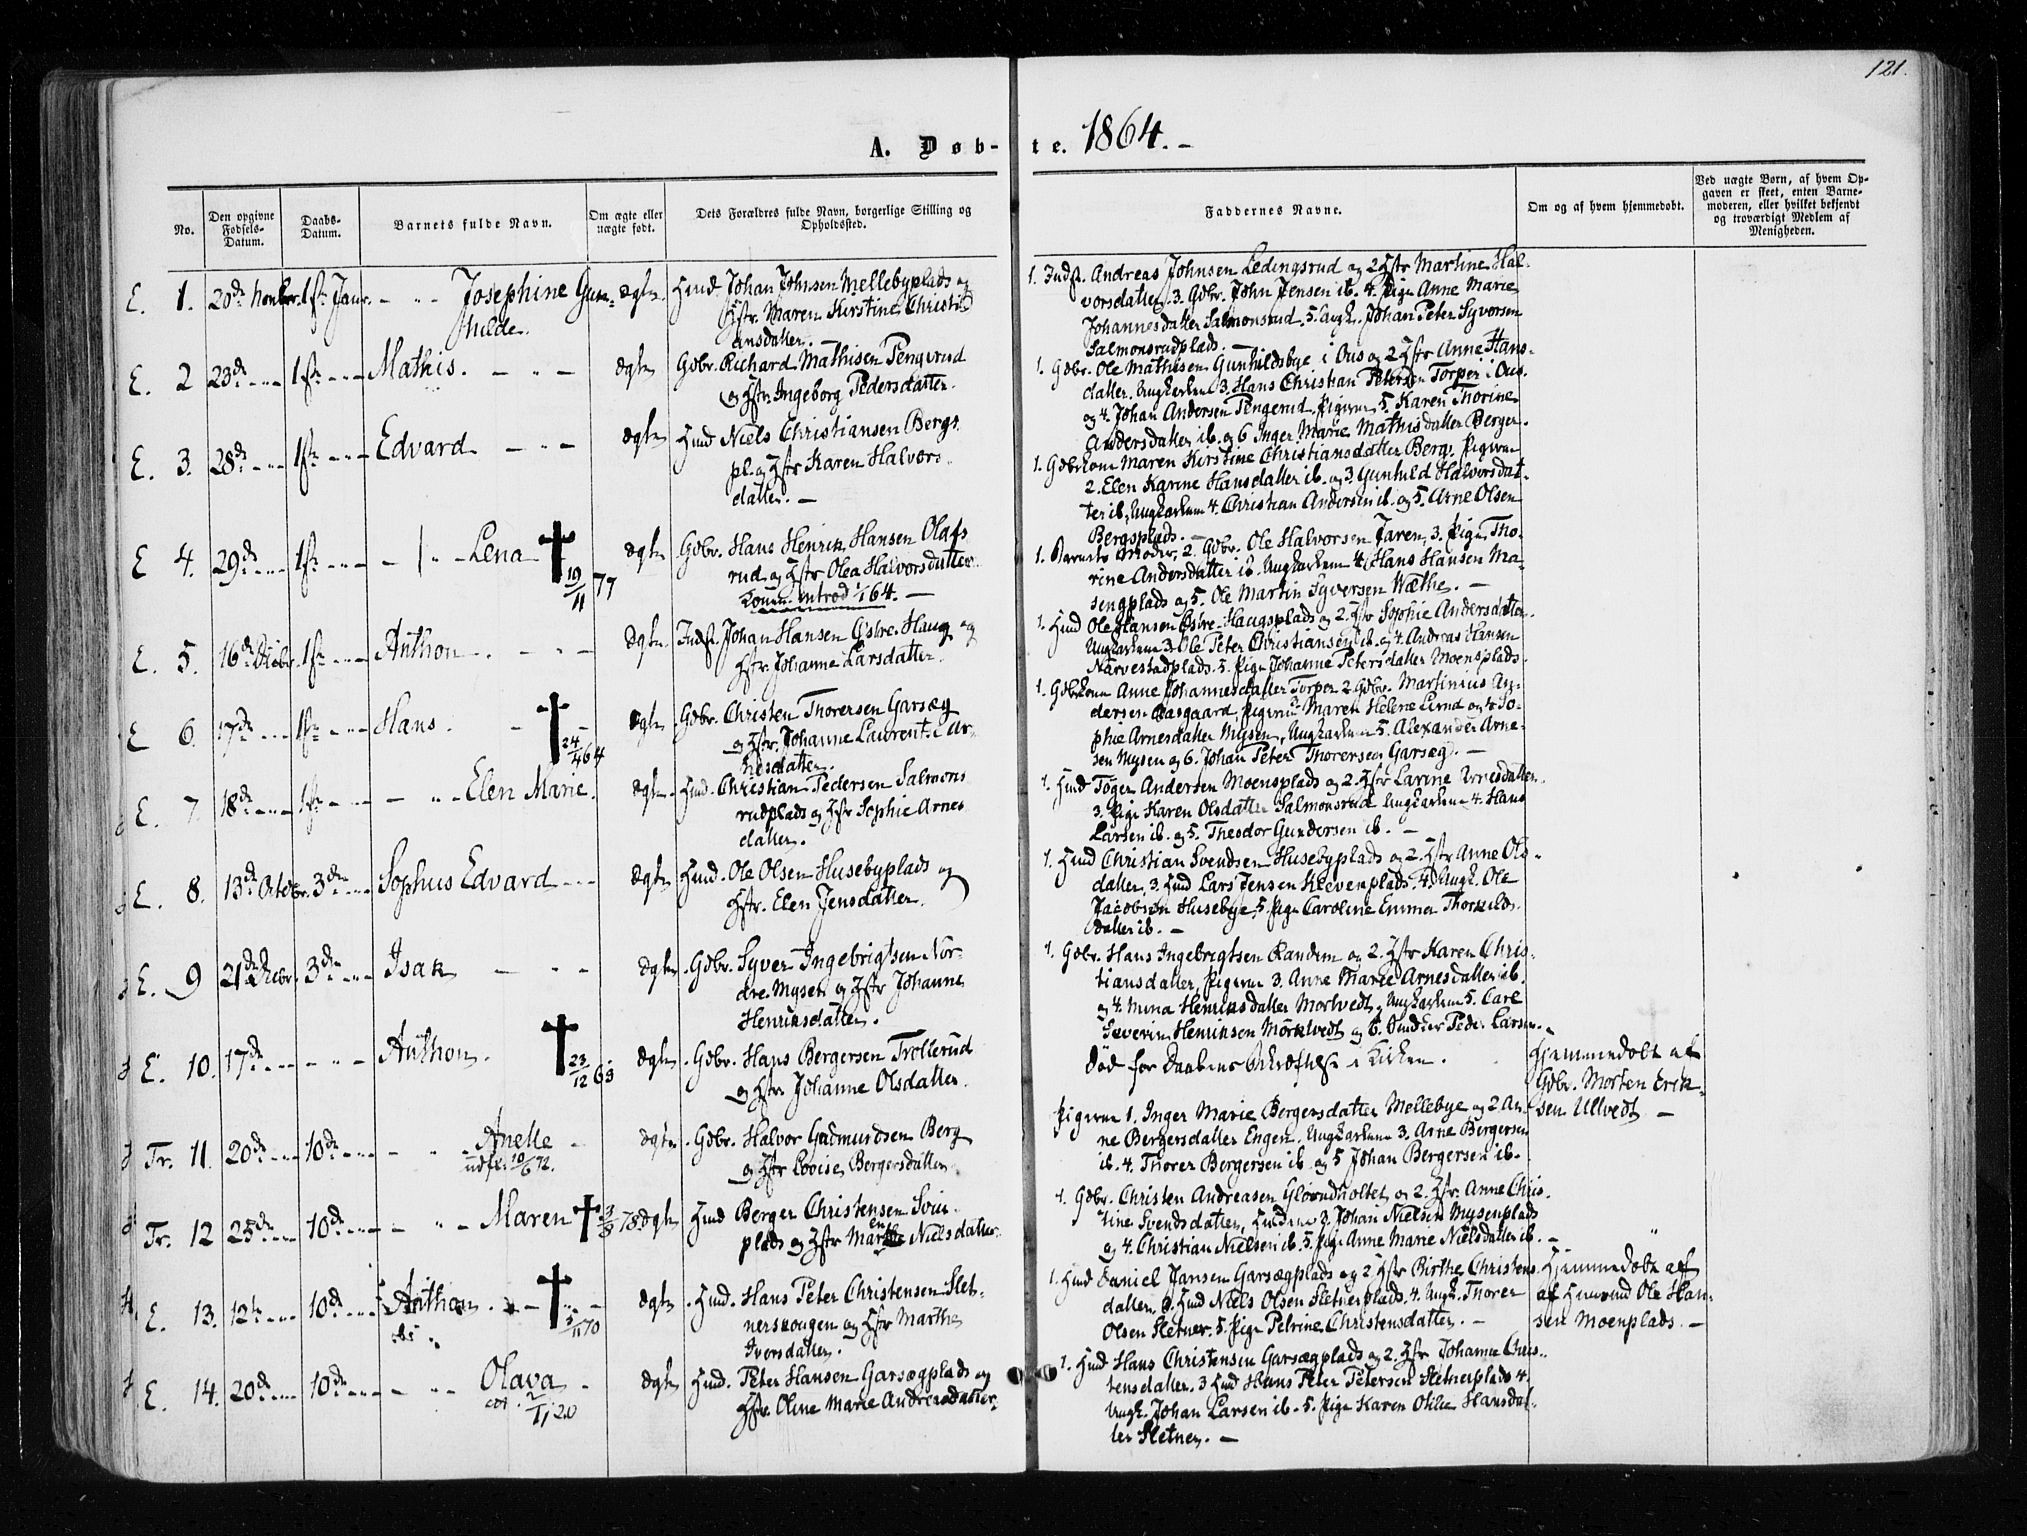 121.
A. Døb-te. 1864.-
No.
Den opgivne Fødsels-Datum.
Daabs-Datum.
Barnets fulde Navn.
Om ægte eller uægte født.
Dets Forældres fulde Navn, borgerlige Stilling og Opholdssted.
Faddernes Navne.
Om og af hvem hjemmedøbt.
Ved uægte Børn, af hvem Opgaven er skeet, enten Barnemoderen, eller hvilket bekjendt og troværdigt Medlem af Menigheden.
E. 1. 20de Novbr. 1ste Janr. - " - Josephine Gun-
hilde.
ægte. Husmd Johan Johnsen Mellebyplads og
Hstr. Maren Kirstine Christi-
ansdatter. -
1. Indst. Andreas Johnsen Ledingsrud og 2 Hstr Martine Hal-
vorsdatter, 3. Gdbr. John Jensen ib. 4. Pige Anne Marie
Johannesdatter Salmonsrud. 5. Ungk. Johan Peter Syvorsen
Salmonsrudplads. -
E. 2 23de - " - 1ste - " - Mathis. - " -
ægte Gdbr. Richard Mathisen Pengerud
og Hstr. Ingeborg Pedersdatter.
1. Gdbr. Ole Mathisen Gunhildsbye i Ous og 2 Hstr Anne Hans-
datter. Ungkarlene 3. Hans Christian Petersen Torper i Ous.
og 4. Johan Andersen Pengerud. Pigerne 5. Karen Thorine
Andersdatter ib. og 6 Inger Marie Mathisdatter Berger.
E. 3. 28de - " - 1ste - " - Edvard - " -
ægte Husmd Niels Christiansen Bergs
pl. og Hstr Karen Halvors-
datter. -
1. Gdbrkone Maren Kirstine Christiansdatter Berg. Pigerne
2. Elen Karine Hansdatter ib. og 3. Gunhild Halvorsdat-
ter ib, Ungkarlene 4. Christian Andersen ib. og 5. Arne Olsen
Bergsplads. -
E 4. 29de - " - 1ste - " - Lena † 19/11 77
ægte Gdbr. Hans Henrik Hansen Olafs
rud og Hstr Olea Halvorsdatter.
Konen introd 1/1 64. -
1. Barnets Moder, 2. Gdbr. Ole Halvorsen Jaren, 3. Pige Tho-
rine Andersdatter ib. Ungkarlene 4. Hans Hansen Ma-
sengplads og 5. Ole Martin Syversen Wæthe. -
E. 5. 16de Decbr. 1ste - " - Anthon. - " -
ægte. Indst. Johan Hansen Østre Haug og
Hstr. Johanne Larsdatter.
1. Husmd Ole Hansen Østre Haugsplads og 2. Hstr Sophie Andersdatter
Ungkarlene 3. Ole Peter Christiansen ib. og 4. Andreas Hansen
Narvestadplads. 5. Pige Johanne Petersdatter Moensplads.
E 6. 17de - " - 1ste - " - Hans. - † 24/4 64
ægte. Gdbr. Christen Thorersen Garsæg
og Hstr. Johanne Laurentse Ar-
nesdatter.
1. Gdbrkone Anne Johannesdatter Torper 2. Gdbr. Martinius An-
dersen Aasgaard, Pigerne 3. Maren Helene Lund og 4. So-
phie Arnesdatter Mysen, Ungkarlene 5. Alexander Arne-
sen Mysen og 6. Johan Peter Thorersen Garsæg. -
E. 7. 18de - " - 1ste - " - Elen Marie.
ægte. Husmd. Christian Pedersen Salmons
rudplads og Hstr Sophie Arnes
datter.
1. Husmd Töger Andersen Moensplads og 2. Hstr Larine Arnesdatter.
3. Pige Karen Olsdatter Salmonsrud Ungkarlene 4. Hans
Larsen ib. og 5. Theodor Gundersen ib. -
E. 8. 13de Octbr. 3die - " - Sophus Edvard - - -
ægte Husmd. Ole Olsen Husebyplads og
Hstr. Elen Jensdatter.
1. Husmd Christian Svendsen Husebyplads og 2. Hstr Anne Ols-
datter, 3. Husmd Lars Jensen Klevenplads. 4. Ungk. Ole
Jacobsen Husebye, 5. Pige Caroline Emma Thorkilds-
datter ib. -
E. 9 21de Decbr. 3die - " - Isak - " -
ægte. Gdbr. Syver Ingebrigtsen Nör-
dre Mysen og Hstr Johanne
Henriksdatter.
1. Gdbr. Hans Ingebrigtsen Randem og 2. Hstr Karen Chris-
tiansdatter, Pigerne 3. Anne Marie Arnesdatter ib.
og 4. Mina Henriksdatter Mortvedt, Ungkarlene 5. Carl
Severin Henriksen Mörtvedt og 6. Peder Larsen.
E. 10. 17de - " - Anthon. † 23/12 63
ægte. Gdbr. Hans Bergersen Trollerud
og Hstr. Johanne Olsdatter.
Död før Daabens Bekræftelse i Kirken.
Hjemmedøbt af
Gdbr. Morten Erik-
sen Ullvedt -
Tr. 11. 20de - " - 10de - " - Anette
udfl. 10/6 72.
ægte. Gdbr. Halvor Gudmundsen Berg
og Hstr Lovise Bergersdatter
Pigerne 1. Inger Marie Bergersdatter Mellebye og 2 An-
ne Bergersdatter Engen. Ungkarlene 3. Arne Bergersen
ib. 4. Thorer Bergersen ib og 5 Johan Bergersen ib.
Tr. 12 25de - " - 10de - " - Maren † 3/8 78.
ægte Husmd Berger Christensen Svin-
plads og Hstr Maren Nielsdatter.
1. Gdbr. Christen Andreasen Glorudholtet og 2. Hstr. Anne Chris-
tine Svendsdatter, Husmdene 3. Johan Nielsen Mysenplads
og 4. Christian Nielsen ib. 5. Pige Anne Marie Nielsdatter ib. -
E. 13. 12te - " - 10de - " - Anthon. † 5/11 70
ægte. Husmd. Hans Peter Christensen Slet-
nerskougen og Hstr Marthe
Iversdatter.
1. Husmd Daniel Jansen Garsægplads og 2 Hstr Birthe Christens
datter, 3. Husmd Niels Olsen Sletnerplads. 4. Ungk. Thorer
Olsen Sletner. 5. Pige Petrine Christensdatter. -
Hjemmedøbt af
af Husmd Ole Han-
sen Moenplads. -
E. 14. 20de - " - 10de - " - Olava
1/11 20
ægte Husmd. Peter Hansen Garsægplads og
Hstr. Oline Marie Andreasdatter.
1. Husmd Hans Christensen Garsægplads og 2. Hstr Johanne Chris-
tensdatter. 3 Husmd Hans Peter Petersen Sletnerplads 4.
Ungk. Johan Larsen ib. 5. Pige Karen Otilie Hansdat-
ter Sletner. -